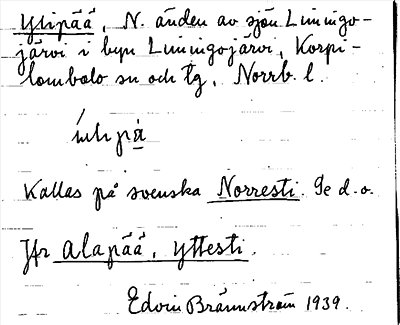 Ylipää, N. änden av sjön Liningo-
järvi i byn Liningojärvi, Korpi-
lombolo sn och tg, Norrb. l.
Kallas på svenska Norresti. Se d. o.
Jfr Alapää, Yttesti.
Edvin Brännström 1939.